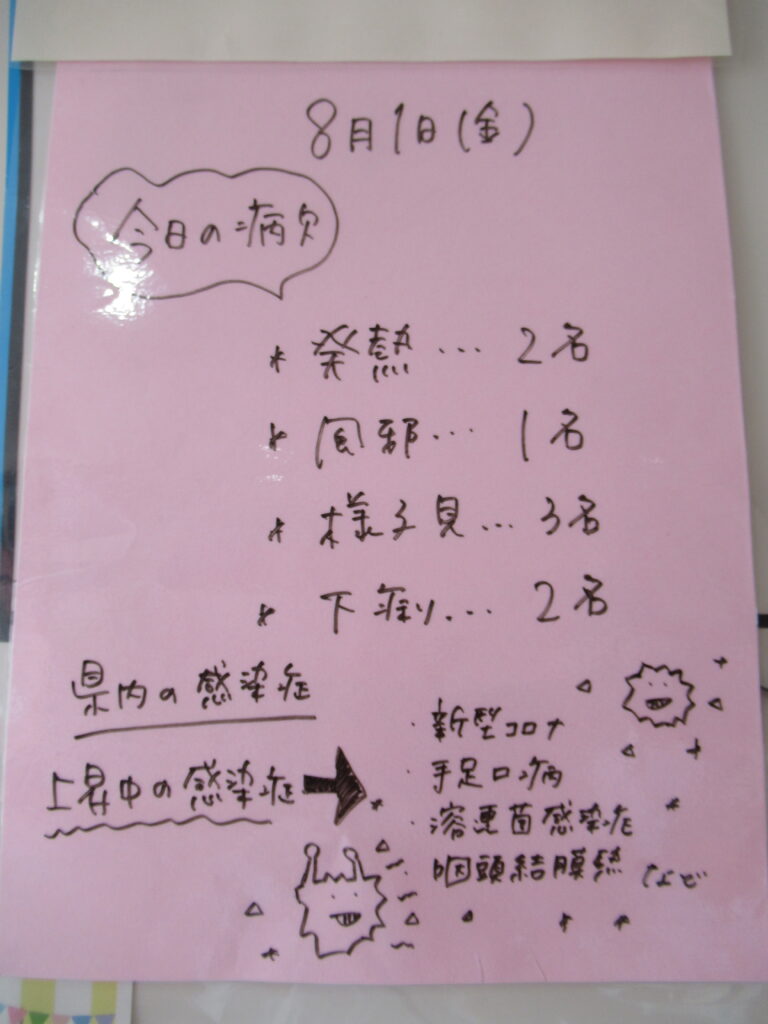 8月1日(金)
今日の病欠
* 発熱... 2名
* 風邪... 1名
* 様子見... 3名
* 下痢... 2名
県内の感染症
上昇中の感染症
・新型コロナ
・手足口病
・溶連菌感染症
咽頭結膜熱 など